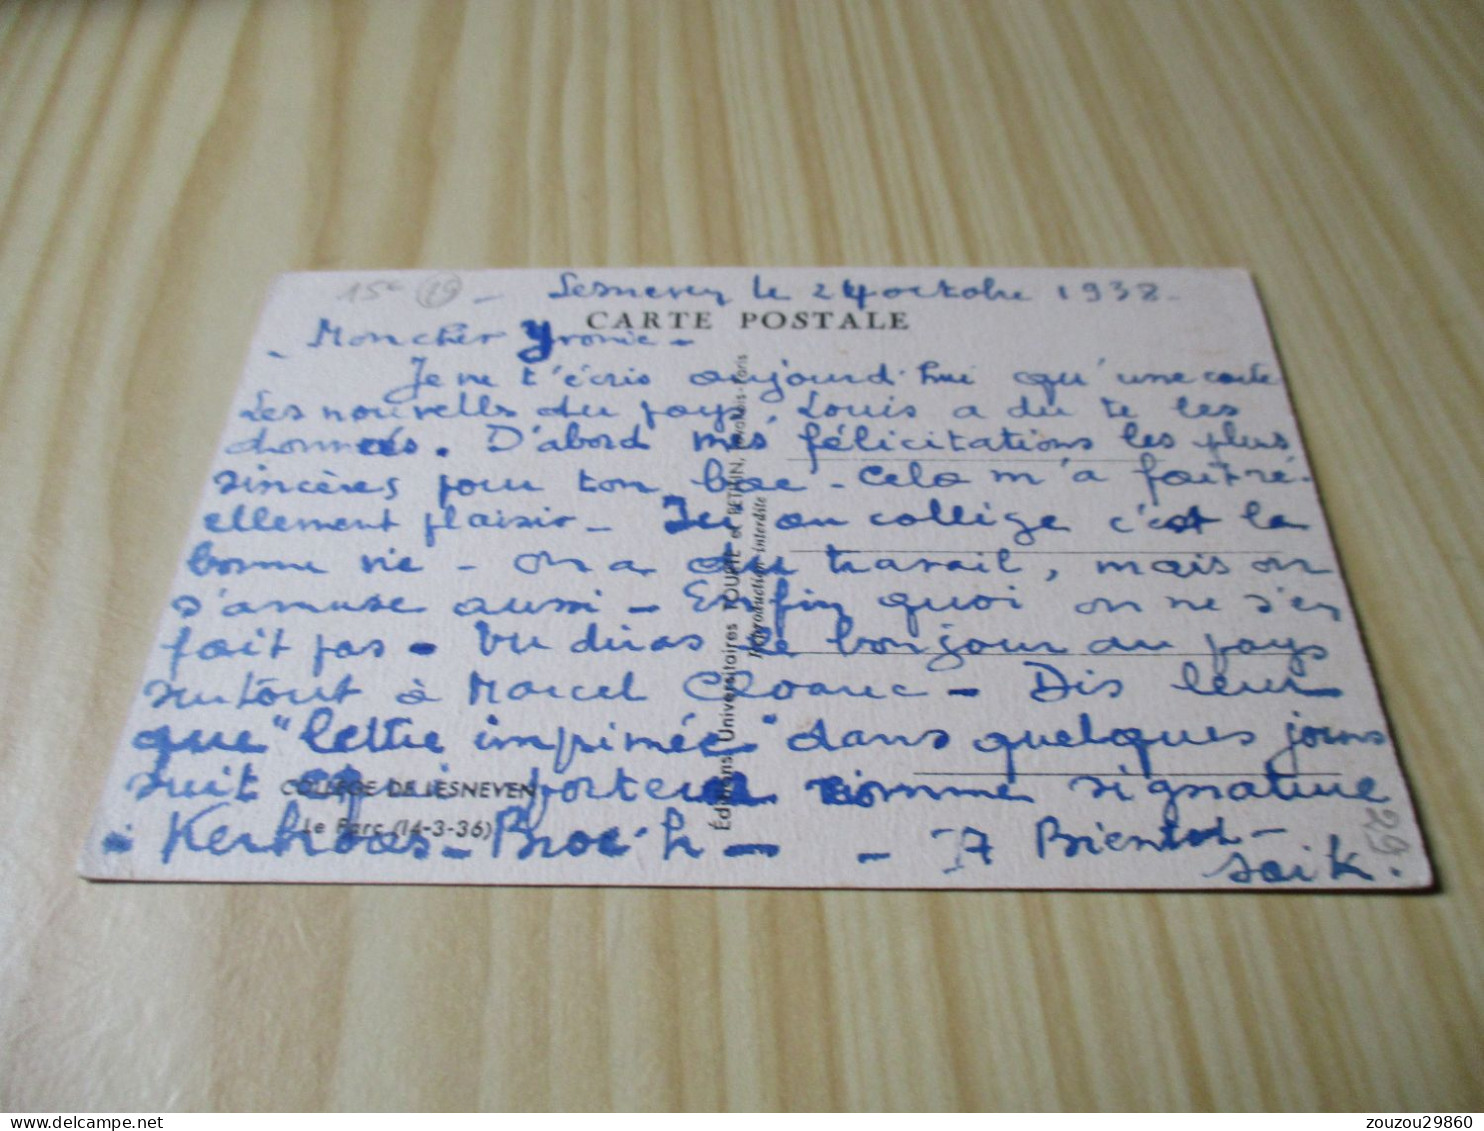 15€ 29
Lesneven le 24 octobre 1938
CARTE POSTALE
- Mon cher Yvonic -
Je ne t'écris aujourd'hui qu'une carte
Les nouvelles du pays, Louis a du te les
données. D'abord mes félicitations les plus
sincères pour ton bac - Cela m'a fait ré-
ellement plaisir - Ici au collège c'est la
bonne vie - On a du travail, mais on
s'amuse aussi - Enfin quoi on ne s'en
fait pas - Tu diras le bonjour au pays
surtout à Marcel Cloarec - Dis leur
que "lettre imprimée" dans quelques jours
suit et qui portera comme signature
- Kerhoas - Broc'h - - A Bientot -
Saik.
COLLEGE DE LESNEVEN
Le Parc (14-3-36)
Éditions Universitaires TOURTE et PETITIN, Levallois-Paris
Reproduction interdite
29
zouzou29860